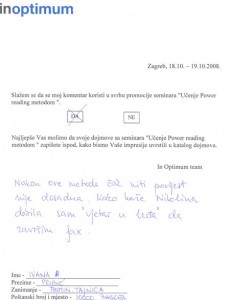 inoptimum
Zagreb, 18.10. – 19.10.2008.
Slažem se da se moj komentar koristi u svrhu promocije seminara "Učenje Power
reading metodom ".
DA
NE
Najljepše Vas molimo da svoje dojmove sa seminara "Učenje Power reading
metodom " zapišete ispod, kako bismo Vaše impresije uvrstili u katalog dojmova.
In Optimum team
Nakon ove metode čak niti povijest
nije dosadna. Kako kaže Nikolina
dobila sam "vjetar u leđa" da
završim fax.
Ime - IVANA
Prezime -
Zanimanje - TAJNICA
Poštanski broj i mjesto - 10000 ZAGREB